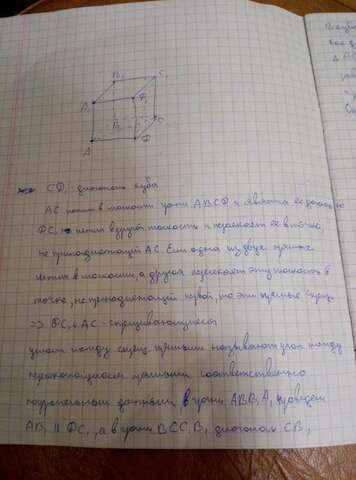 B₁ C₁
A₁ Ф₁
B C
A Ф
СФ₁ диагональ куба
AC лежит в плоскости грани ABCФ и является ее диагональю
ФС₁ лежит в другой плоскости и пересекает ее в точке,
не принадлежащей AC. Если одна из двух прямых
лежит в плоскости, а другая пересекает эту плоскость в
точке, не принадлежащей первой, то эти прямые скрещ.
=> ФС₁ и AC - скрещивающиеся
углом между скрещ. прямыми называют угол между
пересекающимися прямыми соответственно
параллельными данным. в грани ABB₁A₁ проведем
AB₁ || ФС₁, а в грани BCC₁B₁ диагональ CB₁